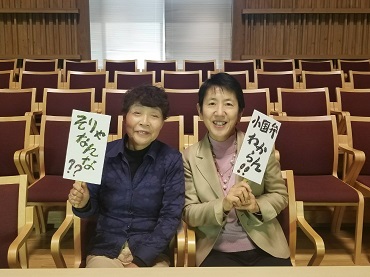 そりゃ
なんな
??
小国弁
わから
ん!!